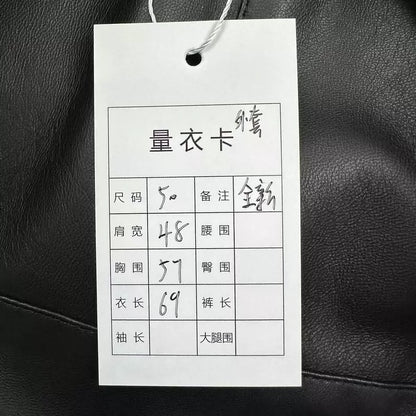 外套
量衣卡
尺码 50 备注 全新
肩宽 48 腰围
胸围 57 臀围
衣长 69 裤长
袖长 大腿围